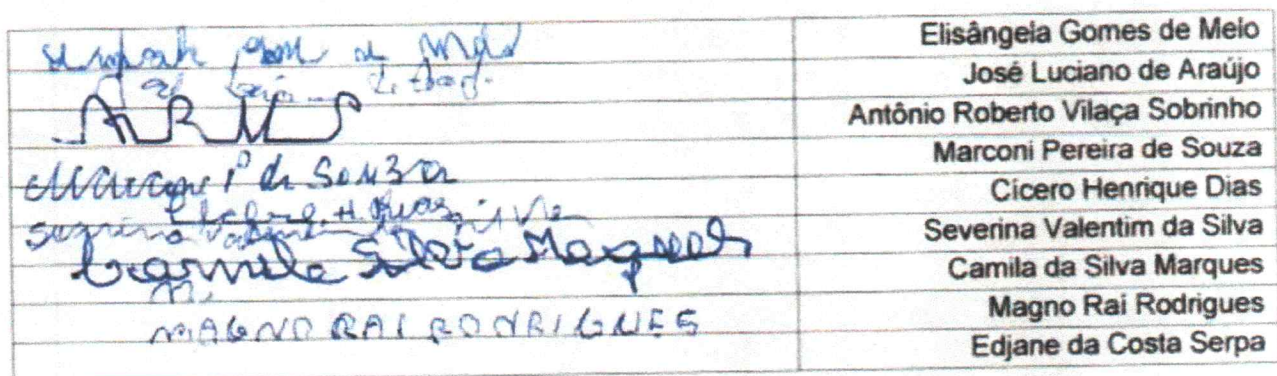 Elisângela Gomes de Melo
José Luciano de Araújo
ARVS Antônio Roberto Vilaça Sobrinho
Marconi P de Souza Marconi Pereira de Souza
H Dias Cicero Henrique Dias
Severina Severina Valentim da Silva
Camila Silva Marques Camila da Silva Marques
M. Magno Rai Rodrigues
MAGNO RAI RODRIGUES Edjane da Costa Serpa